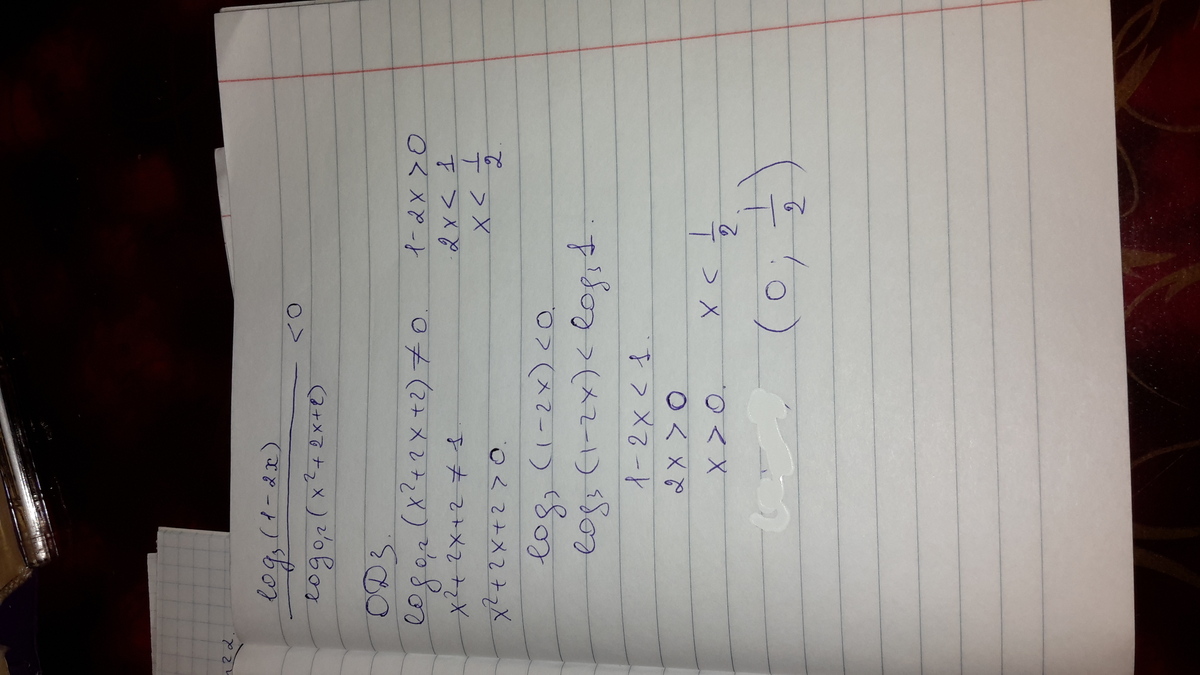 log₃(1-2x)
log₀,₂(x²+2x+2) < 0
ОДЗ.
log₀,₂(x²+2x+2) ≠ 0. 1-2x > 0
x²+2x+2 ≠ 1 2x < 1
x²+2x+2 > 0. x < 1/2.
log₃(1-2x) < 0.
log₃(1-2x) < log₃1.
1-2x < 1.
2x > 0
x > 0. x < 1/2.
(0; 1/2)